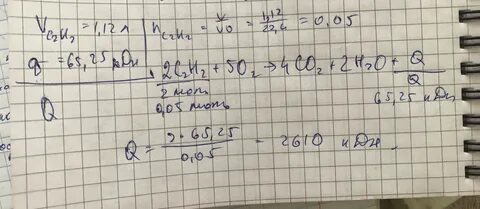 V C₂H₂ = 1,12 л
n C₂H₂ = V/V0 = 1,12/22,4 = 0,05
q = 65,25 кДж
Q
2C₂H₂ + 5O₂ → 4CO₂ + 2H₂O + Q
2 моль
Q
0,05 моль
65,25 кДж
Q = 2·65,25/0,05 = 2610 кДж.